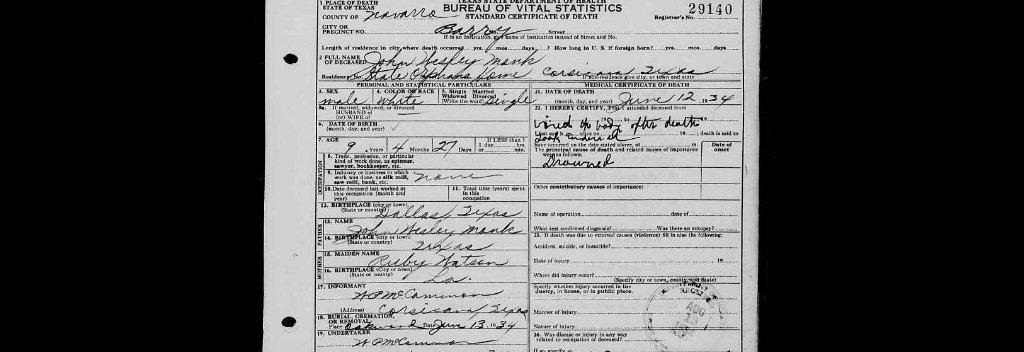 1 PLACE OF DEATH
STATE OF TEXAS
TEXAS STATE DEPARTMENT OF HEALTH
BUREAU OF VITAL STATISTICS
STANDARD CERTIFICATE OF DEATH
29140
COUNTY OF Navarro
Registrar's No.
CITY OR
PRECINCT NO. Barry Street
If in an Institution, give name of Institution instead of Street and No.
Length of residence in city where death occurred yrs. mos. days. ? How long in U. S. if foreign born? yrs. mos. days
2 FULL NAME
OF DECEASED John Wesley Monk
Residence No. State Orphans Home Corsicana, Texas
If non-residence give city, or town and state
PERSONAL AND STATISTICAL PARTICULARS
3. SEX 4. COLOR OR RACE 5. Single Married Widowed Divorced (Write the word)
male White Single
5a. If married, widowed, or divorced
HUSBAND of
(or) WIFE of
6. DATE OF BIRTH
(month, day, and year)
7. AGE If LESS than
9 Years 4 Months 27 Days 1 day hrs. or min.
OCCUPATION
8. Trade, profession, or particular
kind of work done, as spinner,
sawyer, bookkeeper, etc.
9. Industry or business in which
work was done, as silk mill,
saw mill, bank, etc.
none
10. Date deceased last worked at
this occupation (month and
year)
11. Total time (years) spent
in this
occupation
12. BIRTHPLACE (city or town)
(State or country) Dallas, Texas
FATHER
13. NAME John Wesley Monk
14. BIRTHPLACE (city or town)
(State or country) Texas
MOTHER
15. MAIDEN NAME Ruby Watson
16. BIRTHPLACE (city or town)
(State or country) La.
17. INFORMANT
W P McCammon
(Address) Corsicana, Texas
18. BURIAL, CREMATION,
OR REMOVAL
Place Oakwood Date Jun 13 1934
19. UNDERTAKER
W P McCammon
MEDICAL CERTIFICATE OF DEATH
21. DATE OF DEATH
(month, day, and year) June 12 1934
22. I HEREBY CERTIFY, That I attended deceased from
viewed the body after death
19 ; death is said to
have occurred on the date stated above, at m.
The principal cause of death and related causes of importance
were as follows:
Date of
onset
Drowned
Other contributory causes of importance:
Name of operation date of
What test confirmed diagnosis? Was there an autopsy?
23. If death was due to external causes (violence) fill in also the following:
Accident, suicide, or homicide?
Date of injury 19
Where did injury occur?
(Specify city or town, county, and State)
Specify whether injury occurred in industry, in home, or in public place.
Manner of injury
Nature of injury
24. Was disease or injury in any way
related to occupation of deceased?
If so, specify
AUG